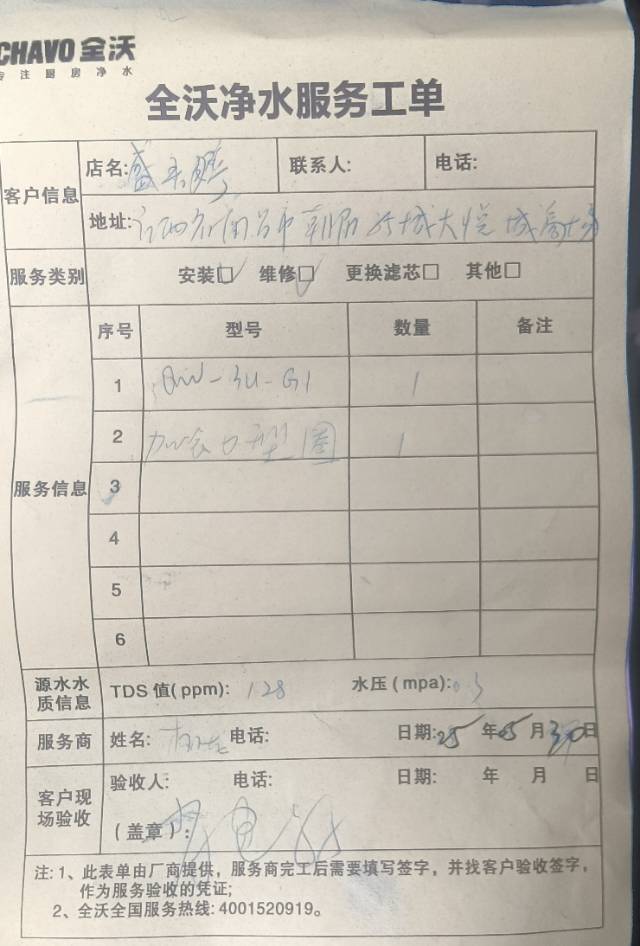 CHAVO 全沃
专注厨房净水
全沃净水服务工单
客户信息 店名: 联系人: 电话:
地址: 市 大悦城
服务类别 安装□ 维修□ 更换滤芯□ 其他□
服务信息 序号 型号 数量 备注
1 QW-3U-G1 1
2 型圈 1
3
4
5
6
源水水质信息 TDS 值(ppm): 128 水压(mpa): 0.3
服务商 姓名: 电话: 日期: 25 年 05 月 30 日
客户现场验收 验收人: 电话: 日期: 年 月 日
(盖章):
注: 1、此表单由厂商提供，服务商完工后需要填写签字，并找客户验收签字，
作为服务验收的凭证;
2、全沃全国服务热线: 4001520919。